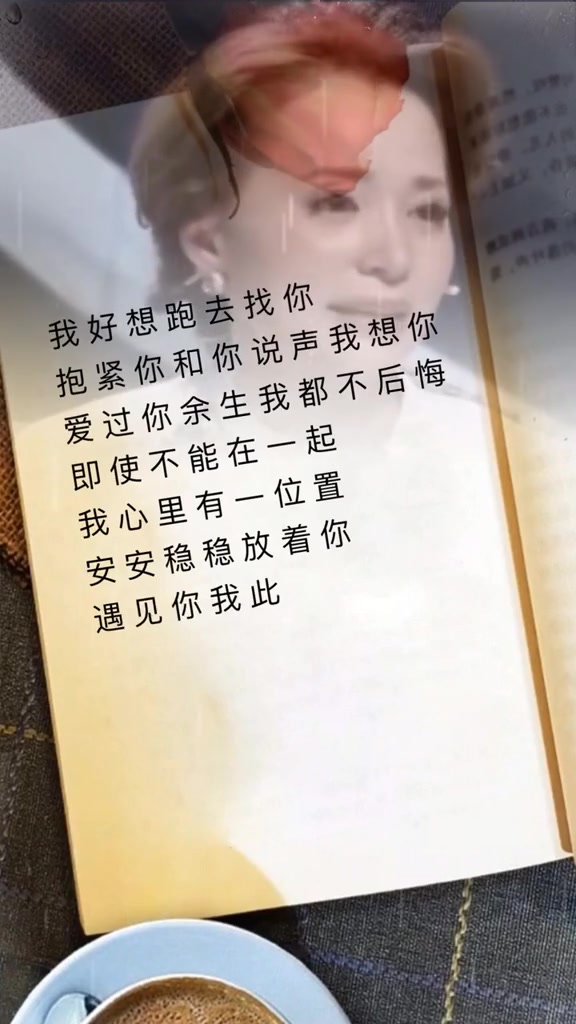 我好想跑去找你
抱紧你和你说声我想你
爱过你余生我都不后悔
即使不能在一起
我心里有一位置
安安稳稳放着你
遇见你我此